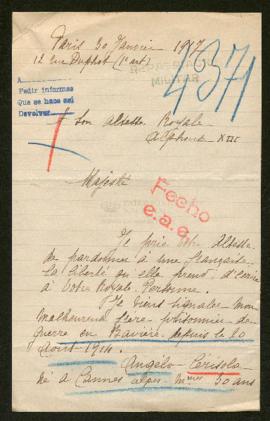 Paris 30 Janvier 1917
12 rue Duphot (1er art)
4371
A
Pedir informes
Que se hace así
Devolver
A Son altesse Royale
Alphonse XIII
Majesté
Fecho
e.a.e.
Je prie votre Altesse
de pardonner à une française
la liberté qu'elle prend d'écrire
à Votre Royale Personne.
Je viens signaler mon
malheureux frère prisonnier de
guerre en Bavière depuis le 20
Août 1914.
Angélo Cerisola
né à Cannes alpes Mmes 30 ans